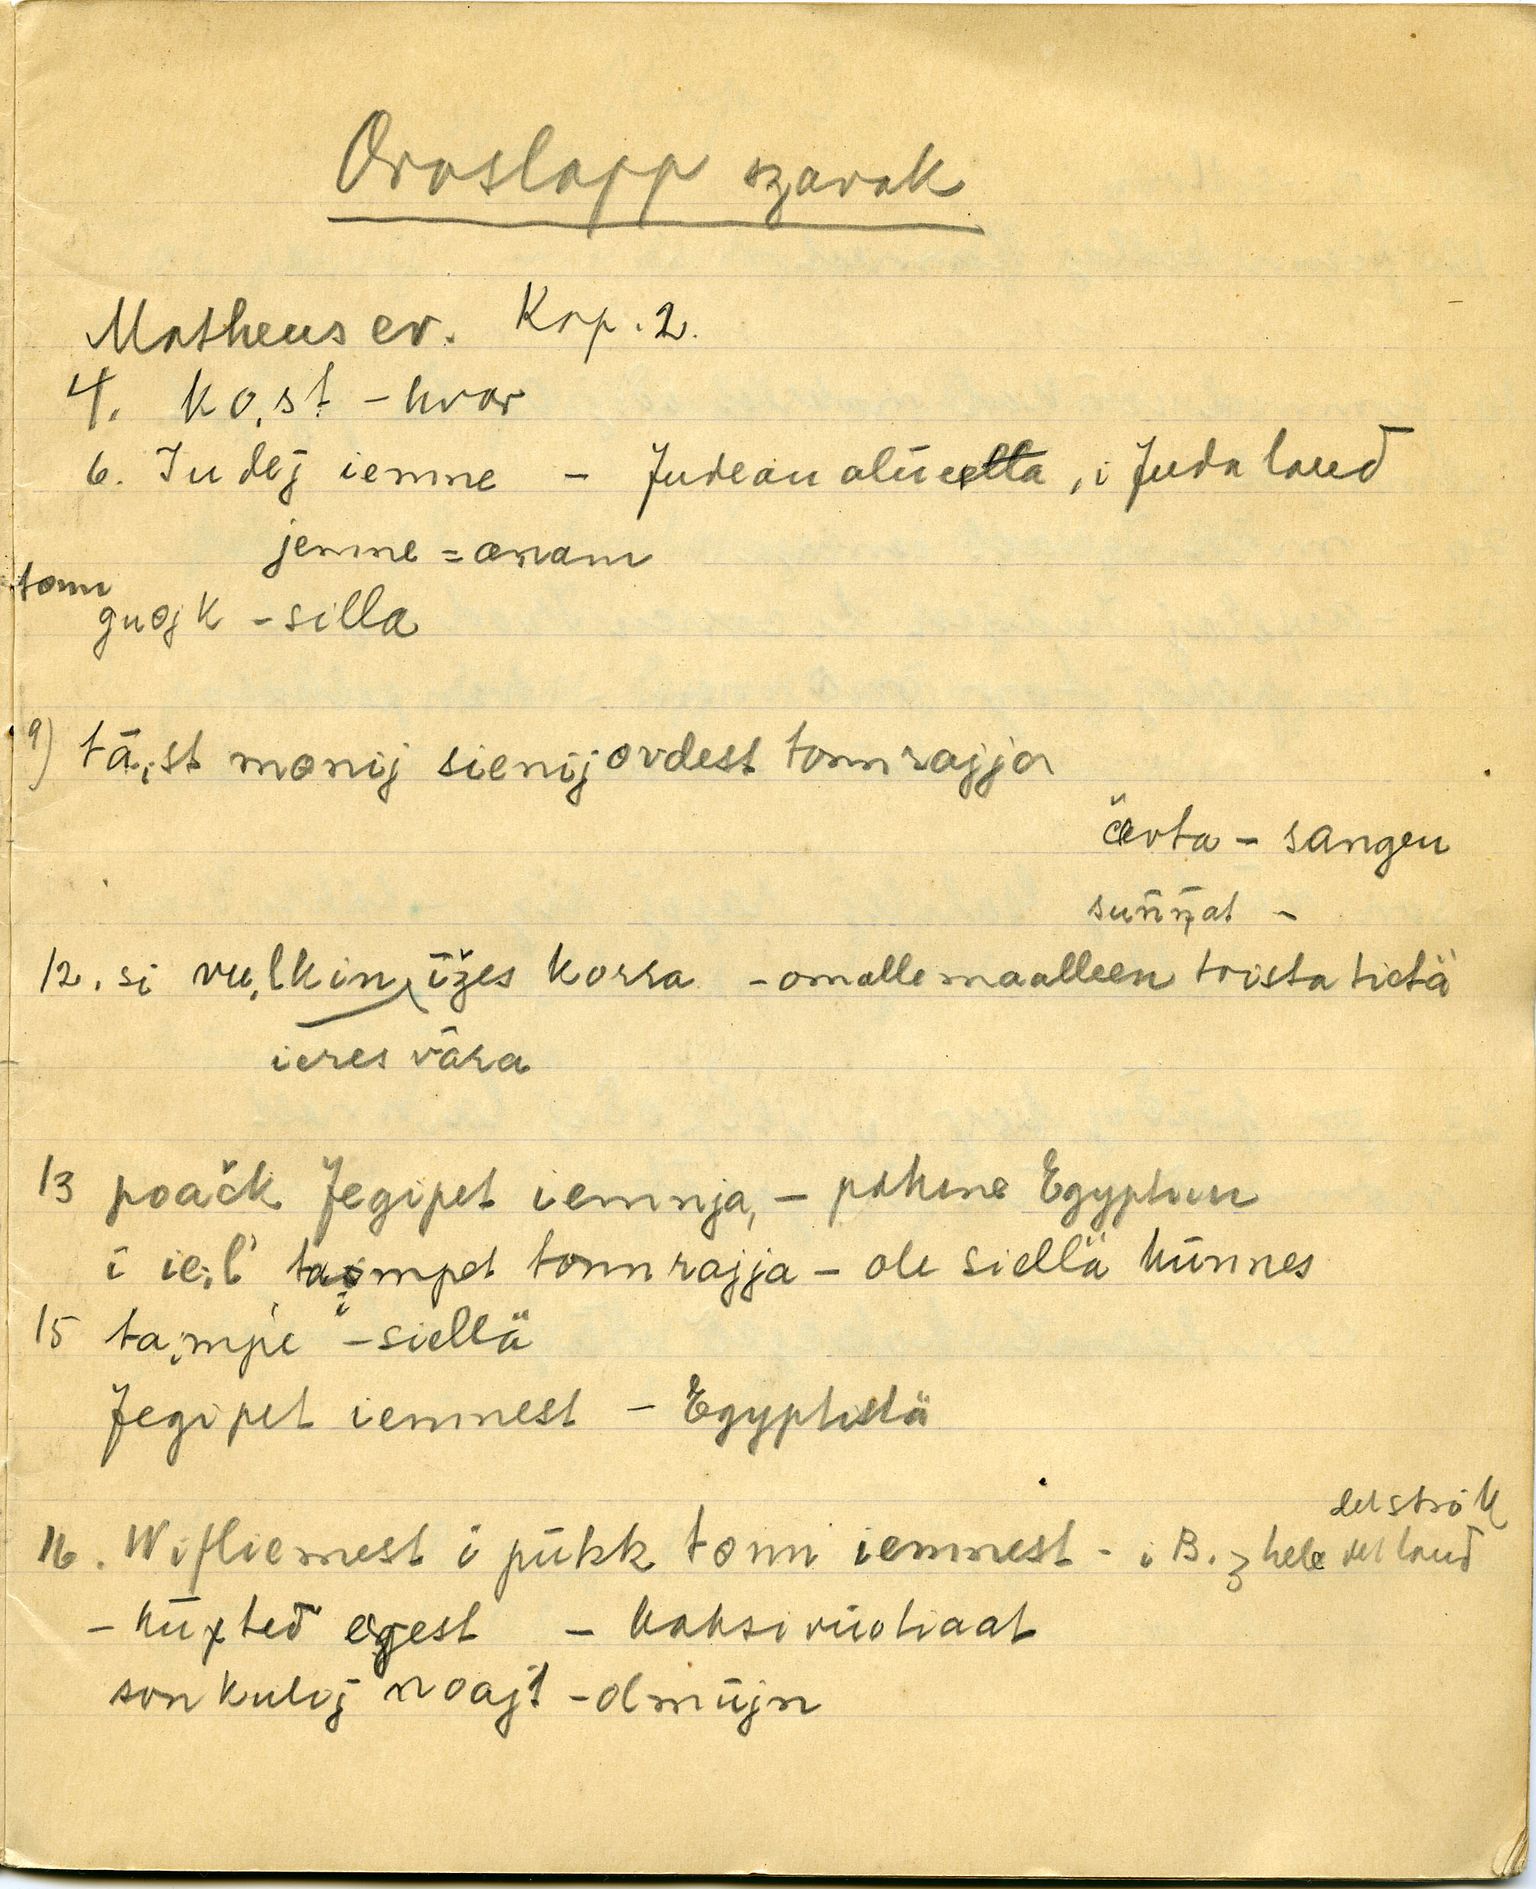 Oroslapp szavak
Matheus ev. Kap. 2.
4. ko̤st - hvor
6. Judej iemne - Judean alüelta, i Juda land
jemne = anam
tonn
guojk - silla
9) tä̤st monij sienij ovdest tonn rajja
čävta - sangen
suññat -
12. si vṳlkin īžes korra - omalle maalleen toista tietä
ieres vāra
13 poačk Jegipet iemnja, - pakene Egyptiin
i ie̤l' ta̤mpet tonn rajja - ole siellä künnes
15 ta̤mpe - siellä
Jegipet iemnest - Egyptistä
16. Wifliemest i pükk tonn iemnest - i B. z hele det land
det strök
- küxted egest - kaksivüotiaat
son kulij noajt - olmüjn